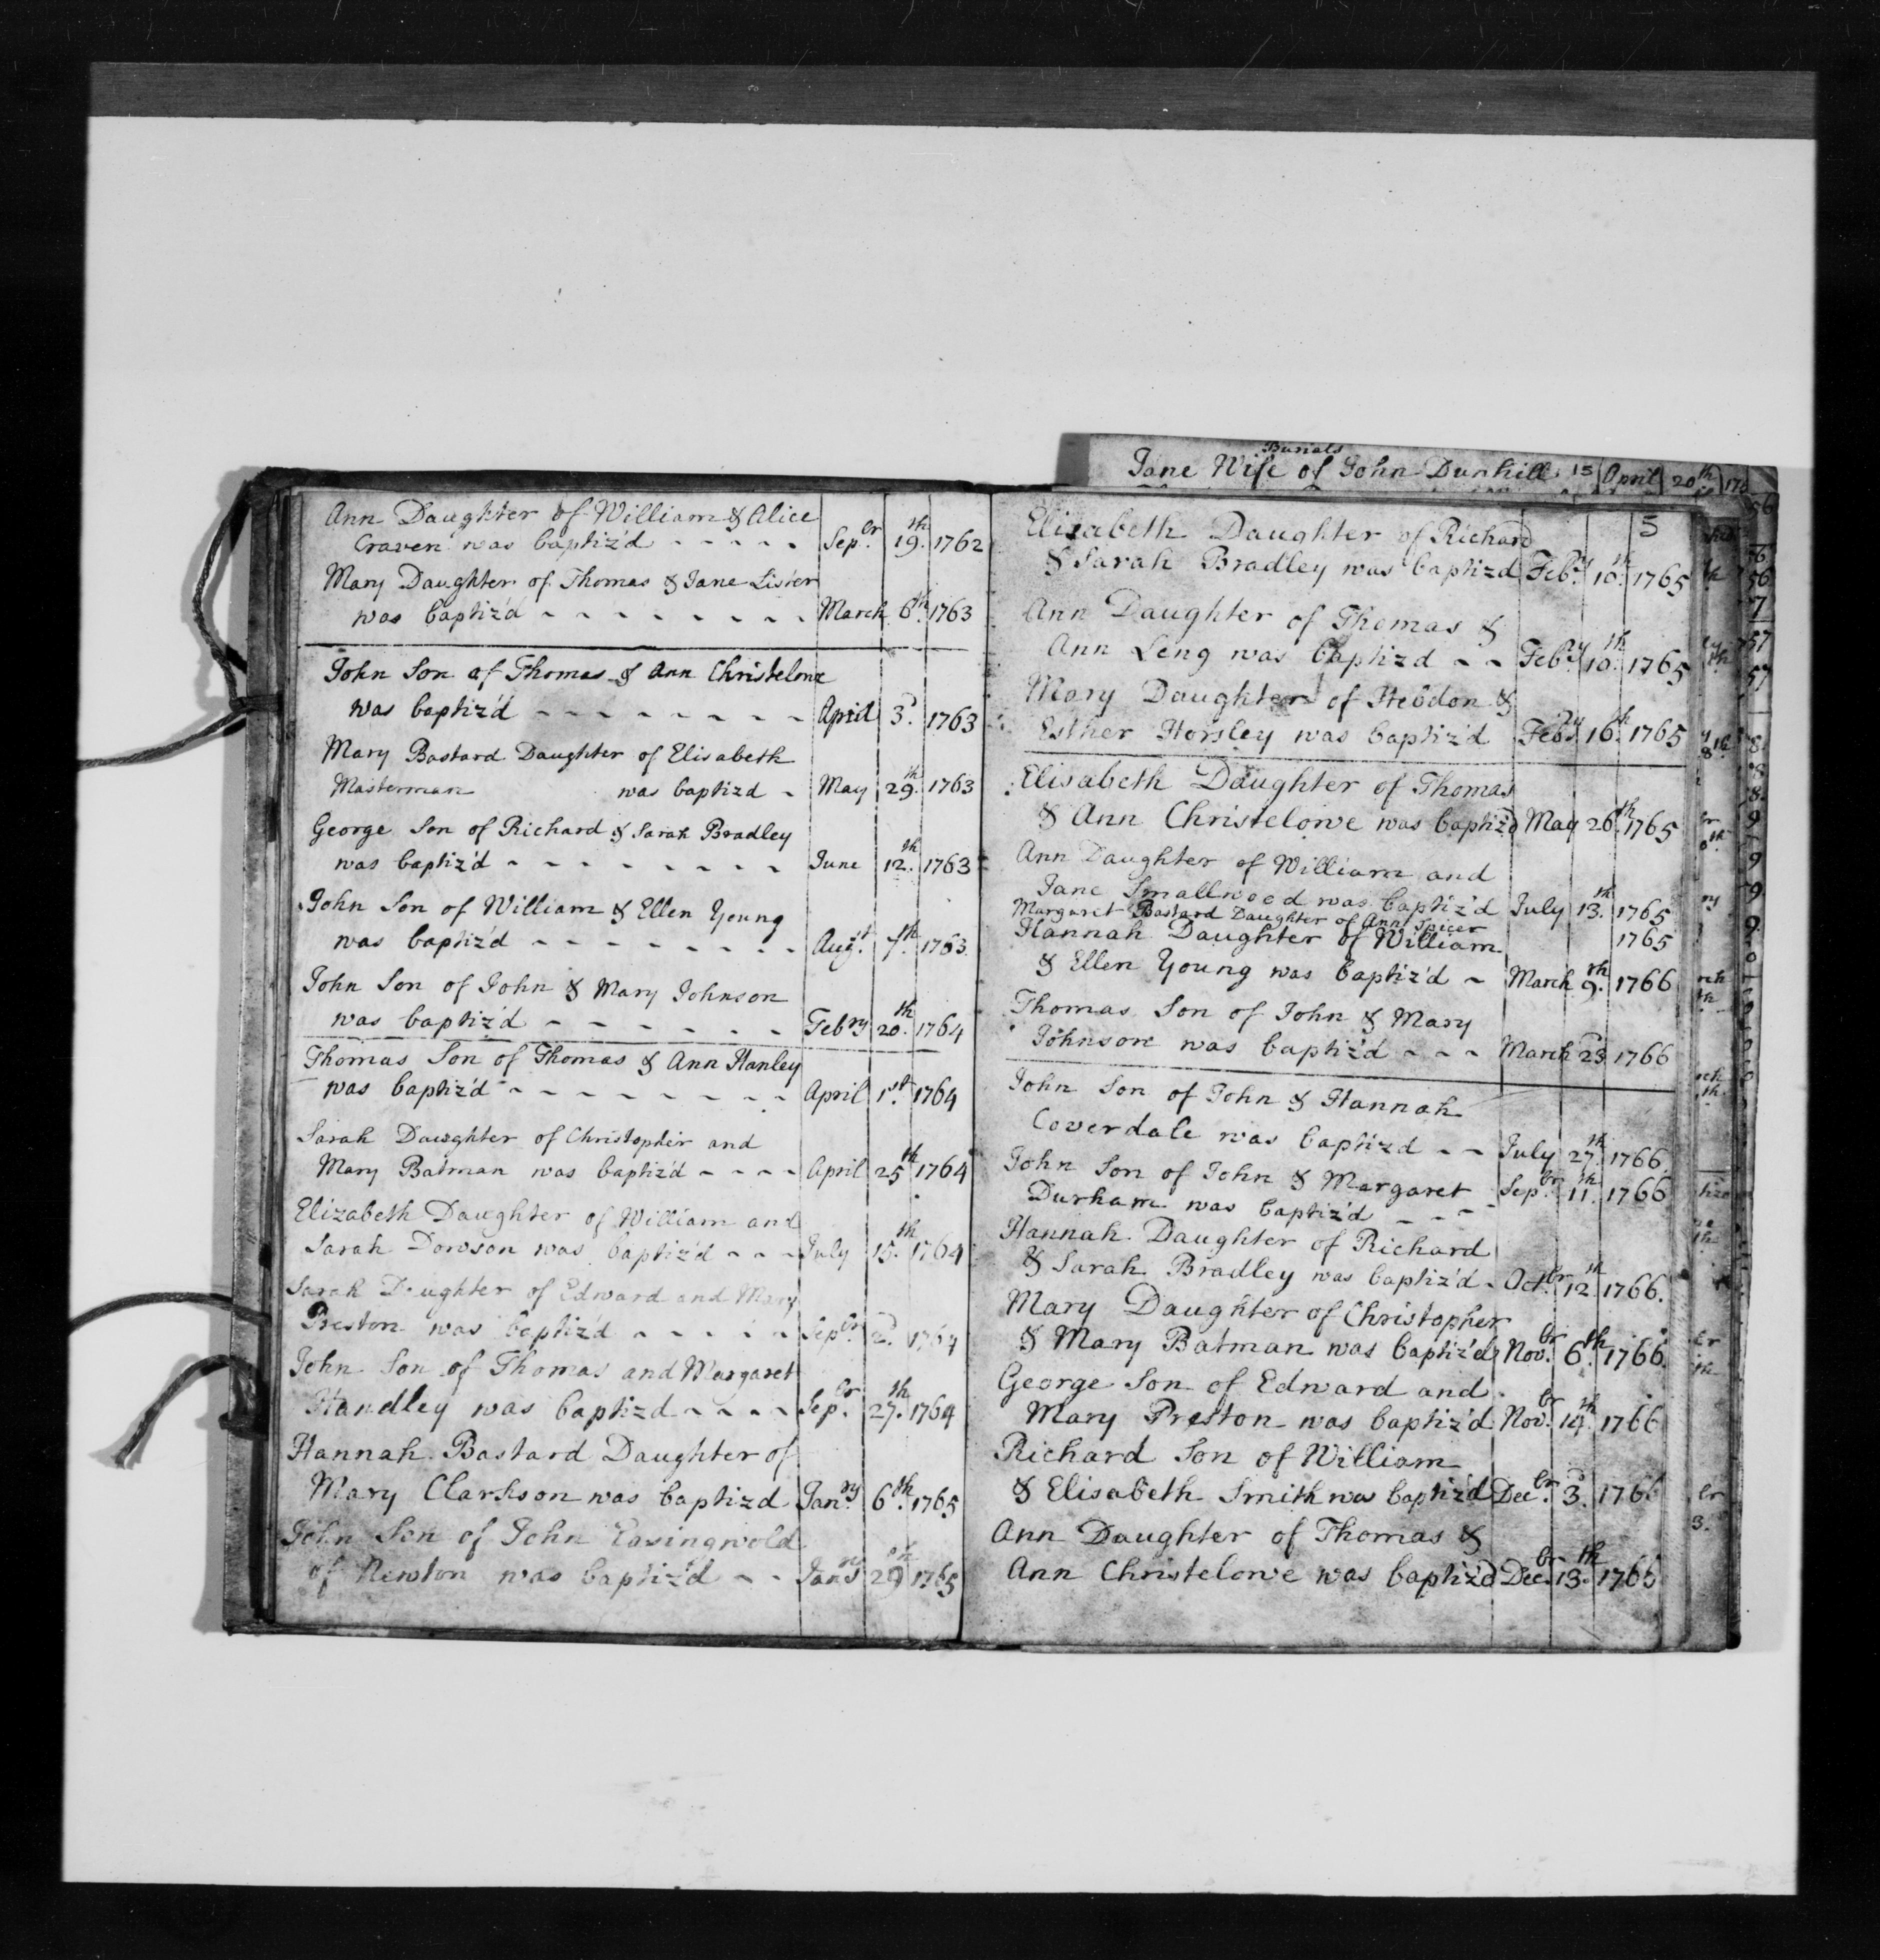 Burials
Jane Wife of John Dunhill 15 April 20th 176
Ann Daughter of William & Alice
Craven was baptiz'd - - - - - Sepbr. 19th. 1762
Mary Daughter of Thomas & Jane Lister
was baptiz'd - - - - - - - - March 6th. 1763
John Son of Thomas & Ann Christelowe
was baptiz'd - - - - - - - - April 3d. 1763
Mary Bastard Daughter of Elisabeth
Masterman was baptizd - May 29th. 1763
George Son of Richard & Sarah Bradley
was baptiz'd - - - - - - - - June 12th. 1763
John Son of William & Ellen Young
was baptiz'd - - - - - - - - Augst. 7th. 1763.
John Son of John & Mary Johnson
was baptiz'd - - - - - - - Febry 20th. 1764
Thomas Son of Thomas & Ann Hanley
was baptiz'd - - - - - - - - April 1st. 1764
Sarah Daughter of Christopher and
Mary Batman was baptiz'd - - - - April 25th 1764
Elizabeth Daughter of William and
Sarah Dowson was baptiz'd - - - July 15th. 1764
Sarah Daughter of Edward and Mary
Preston was baptiz'd - - - - - Sepbr. 2d. 1764
John Son of Thomas and Margaret
Handley was baptizd - - - - Sepbr. 27th. 1764
Hannah Bastard Daughter of
Mary Clarkson was baptizd Janry. 6th. 1765
John Son of John Easingwold
of Newton was baptiz'd - - Janry 29th 1765
5
Elisabeth Daughter of Richard
& Sarah Bradley was baptizd Febry. 10th. 1765
Ann Daughter of Thomas &
Ann Leng was baptizd - - Febry. 10th. 1765
Mary Daughter of Hebdon &
Esther Horsley was baptiz'd Febry. 16th. 1765
Elisabeth Daughter of Thomas
& Ann Christelowe was baptiz'd May 26th. 1765
Ann Daughter of William and
Jane Smallwood was baptiz'd July 13th. 1765
Margaret Bastard Daughter of Ann Spicer
1765
Hannah Daughter of William
& Ellen Young was baptiz'd - March 9th. 1766
Thomas Son of John & Mary
Johnson was baptiz'd - - - March 23d 1766
John Son of John & Hannah
Coverdale was baptizd - - July 27th. 1766.
John Son of John & Margaret Sepbr. 11th. 1766
Durham was baptiz'd - - -
Hannah Daughter of Richard
& Sarah Bradley was baptiz'd - Octbr. 12th. 1766.
Mary Daughter of Christopher
& Mary Batman was baptiz'd Novbr. 6th. 1766.
George Son of Edward and
Mary Preston was baptiz'd Novbr. 14th. 1766
Richard Son of William
& Elisabeth Smith was baptiz'd Decbr. 3d. 1766
Ann Daughter of Thomas &
Ann Christelowe was baptiz'd Decbr. 13th. 1766